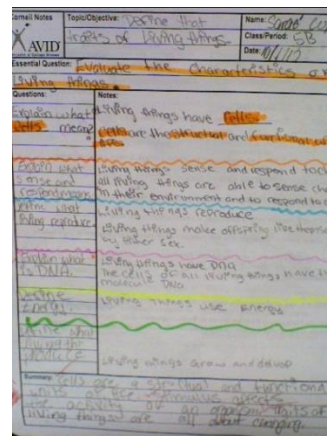 Cornell Notes
Topic/Objective: Define that
traits of living things
Name: Sarah
Class/Period: 5B
Date: 10/1/12
AVID
Essential Question: Evaluate the Characteristics of
living things.
Questions:
Notes:
Explain what
cells mean?
Living things have cells
cells are the structural and functional
Explain what
sense and
respond means
Living things sense and respond to
all living things are able to sense
in their environment and to respond to
Define what
living reproduce
Living things reproduce
Living things make offspring like
by either sex.
Explain what
is DNA.
Living things have DNA
The cells of all living things have
molecule DNA
Define
Energy
Living things use energy
Define what
Living things grow and develop
Summary: Cells are a structural and functional
units of life stimulus affects
the activity of an organism
living things are all about changing.